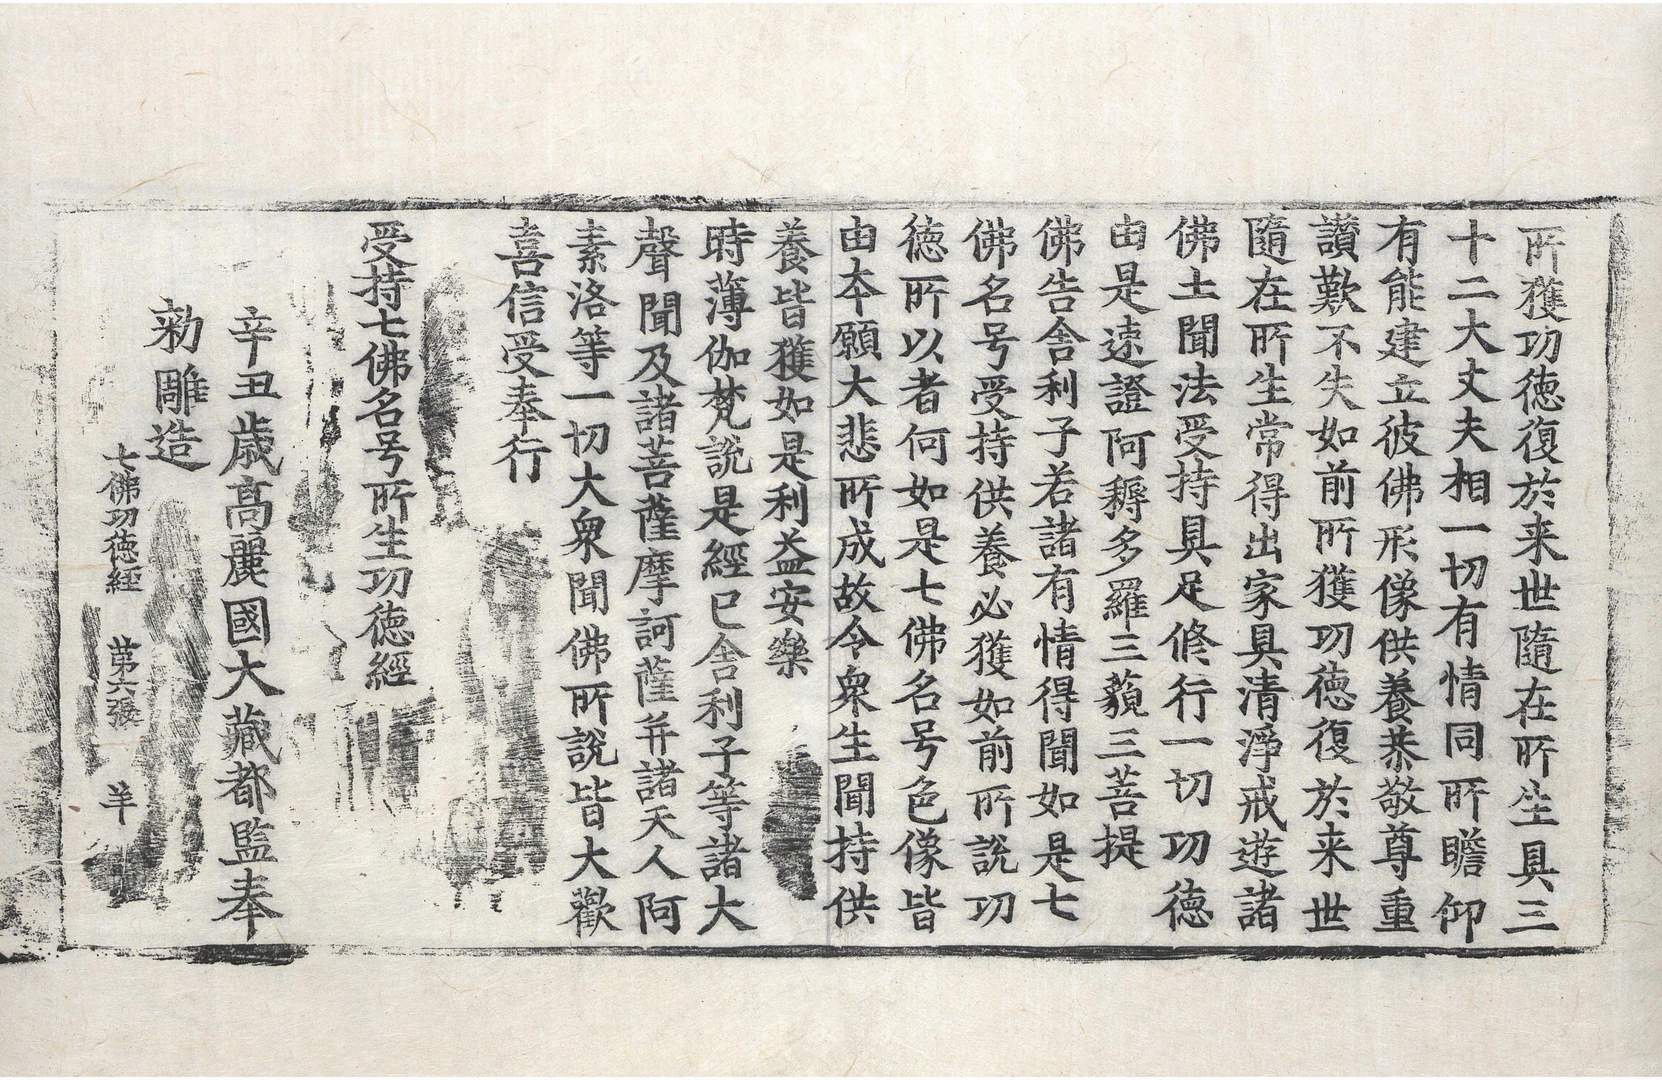 所獲功徳復於来世隨在所生具三
十二大丈夫相一切有情同所瞻仰
有能建立彼佛形像供養恭敬尊重
讃歎不失如前所獲功徳復於来世
隨在所生常得出家具清淨戒遊諸
佛土聞法受持具足修行一切功徳
由是速證阿耨多羅三藐三菩提
佛告舍利子若諸有情得聞如是七
佛名号受持供養必獲如前所説功
徳所以者何如是七佛名号色像皆
由夲願大悲所成故令衆生聞持供
養皆獲如是利益安樂
時薄伽梵説是經已舍利子等諸大
聲聞及諸菩薩摩訶薩并諸天人阿
素洛等一切大衆聞佛所説皆大歡
喜信受奉行
受持七佛名号所生功徳經
辛丑歳高麗國大藏都監奉
勅雕造
七佛功徳經 苐六張 羊